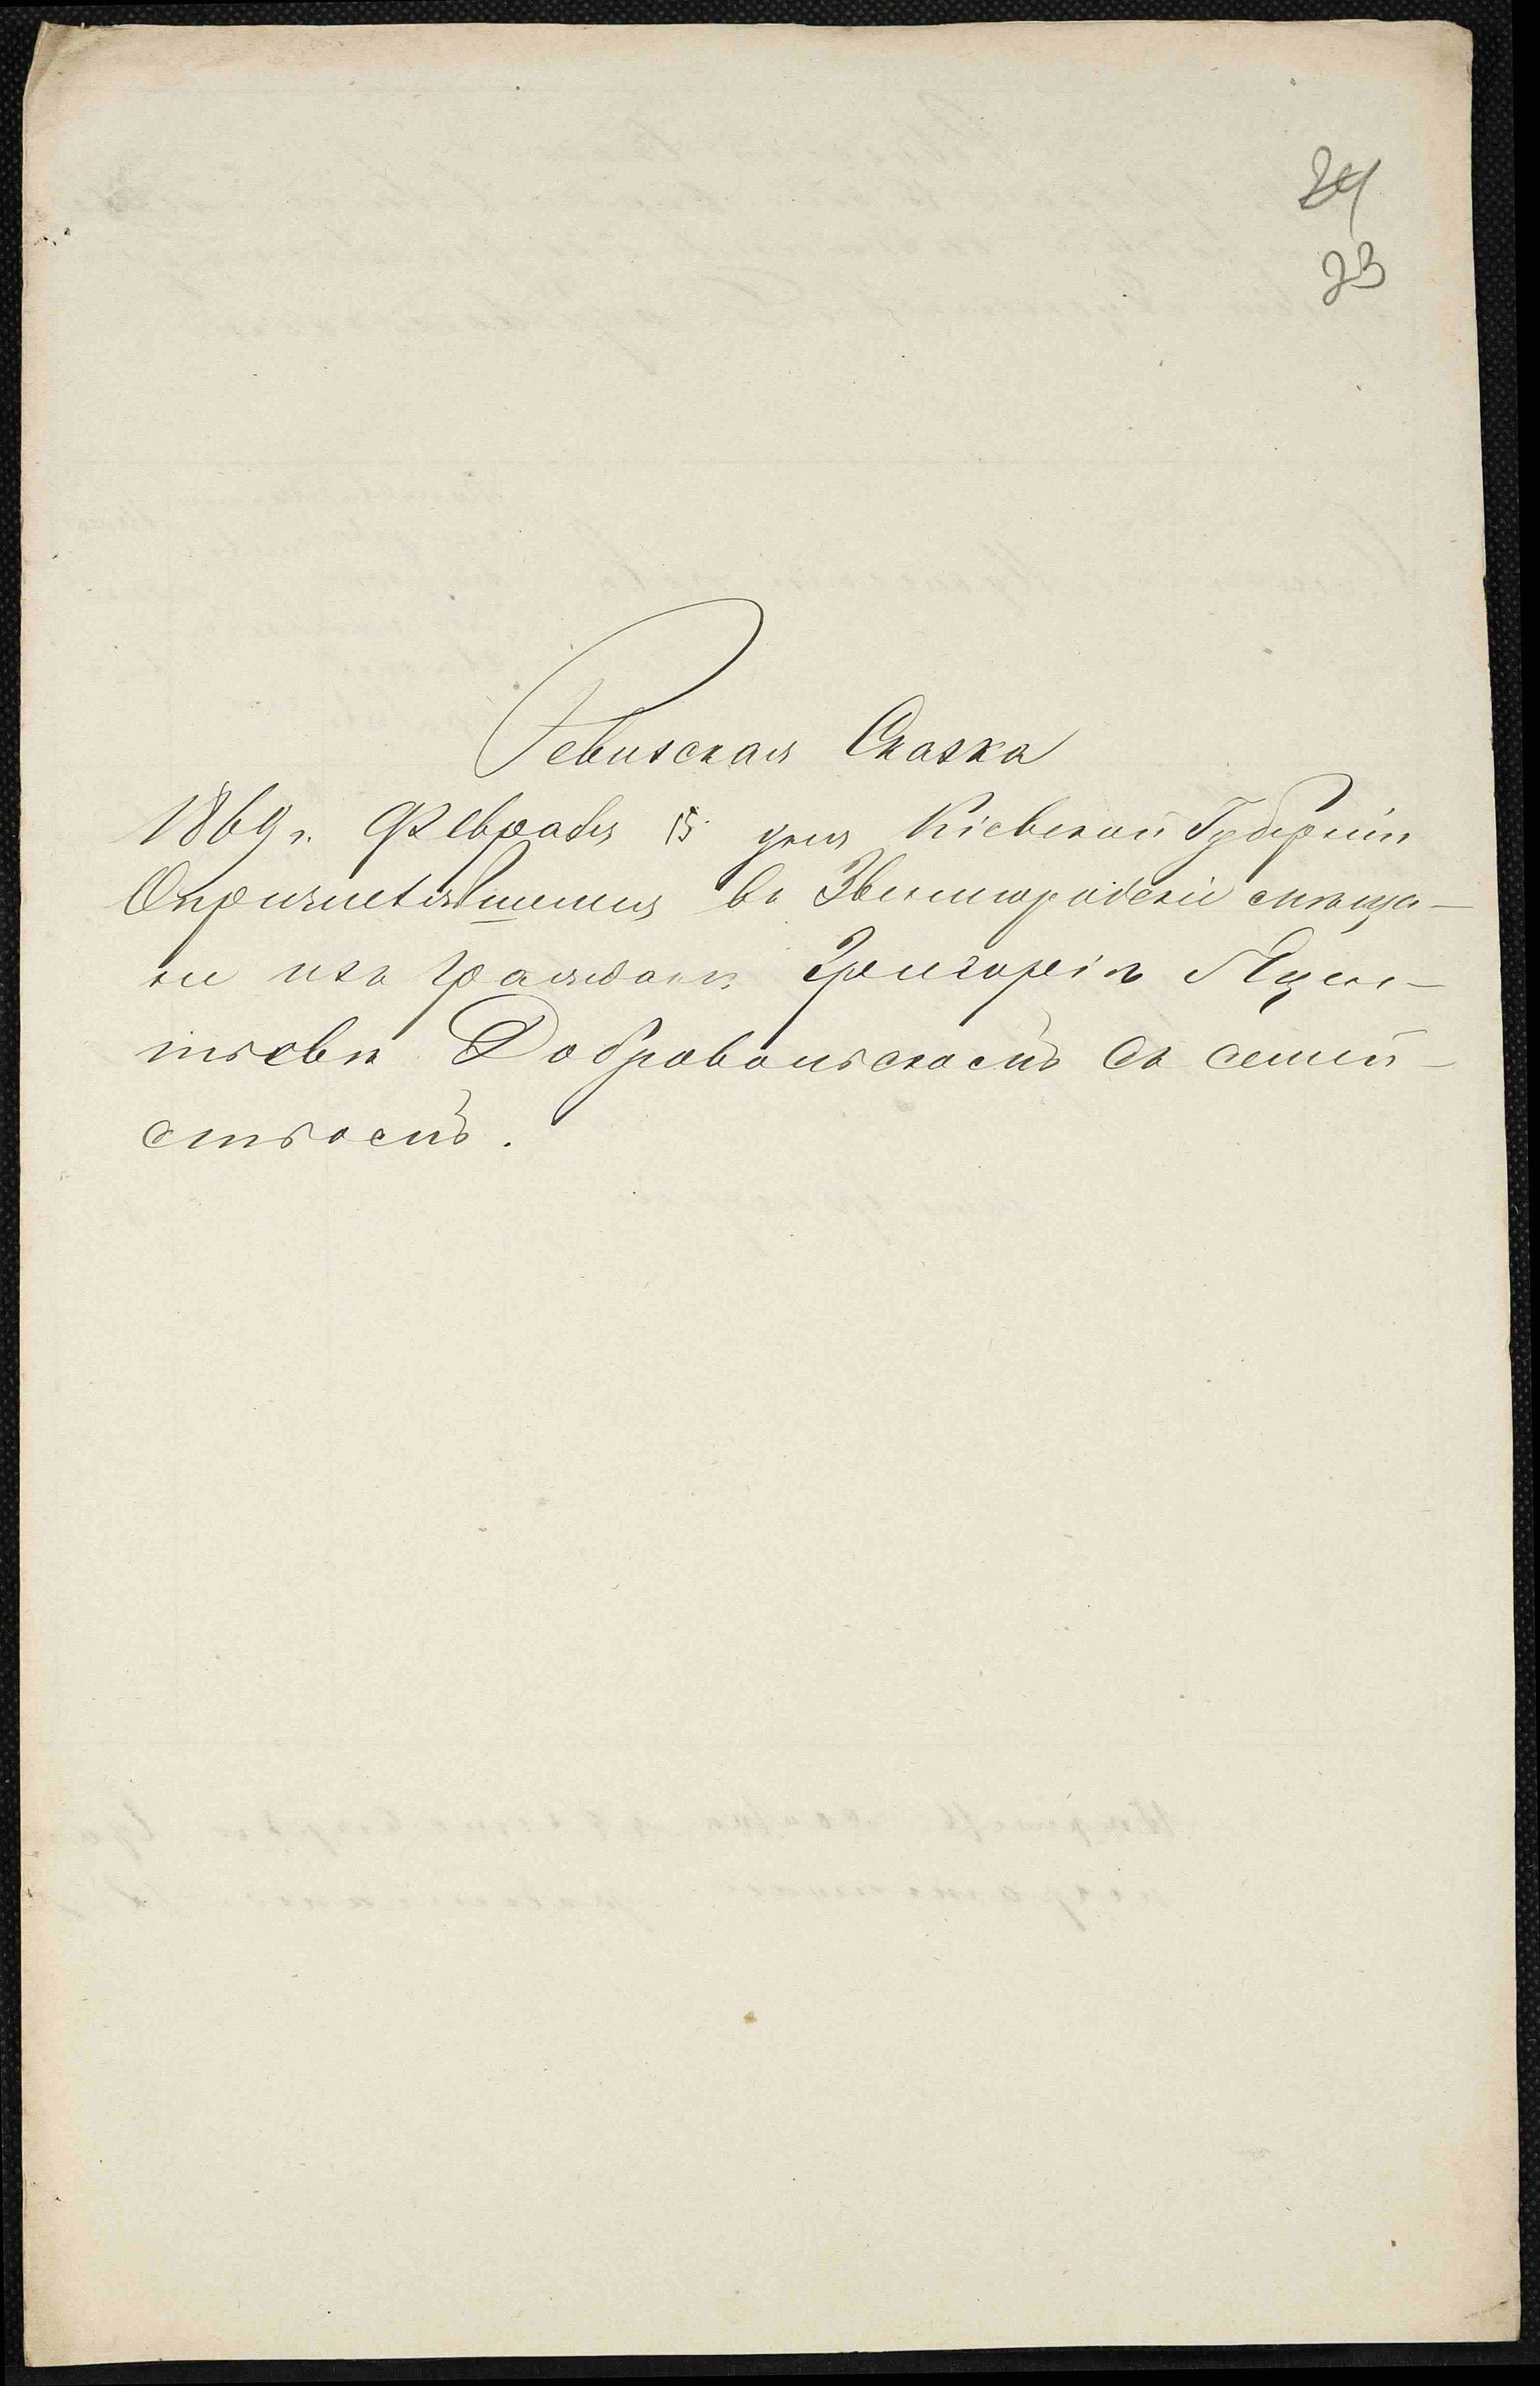 24
23
Ревизская Сказка
1869 г. Февраля 15 дня Кіевской Губерніи
О причислившемся въ Звенигородскіе мѣща-
не изъ Граждан Григоріѣ
Добровольскомъ съ семей-
ствомъ.